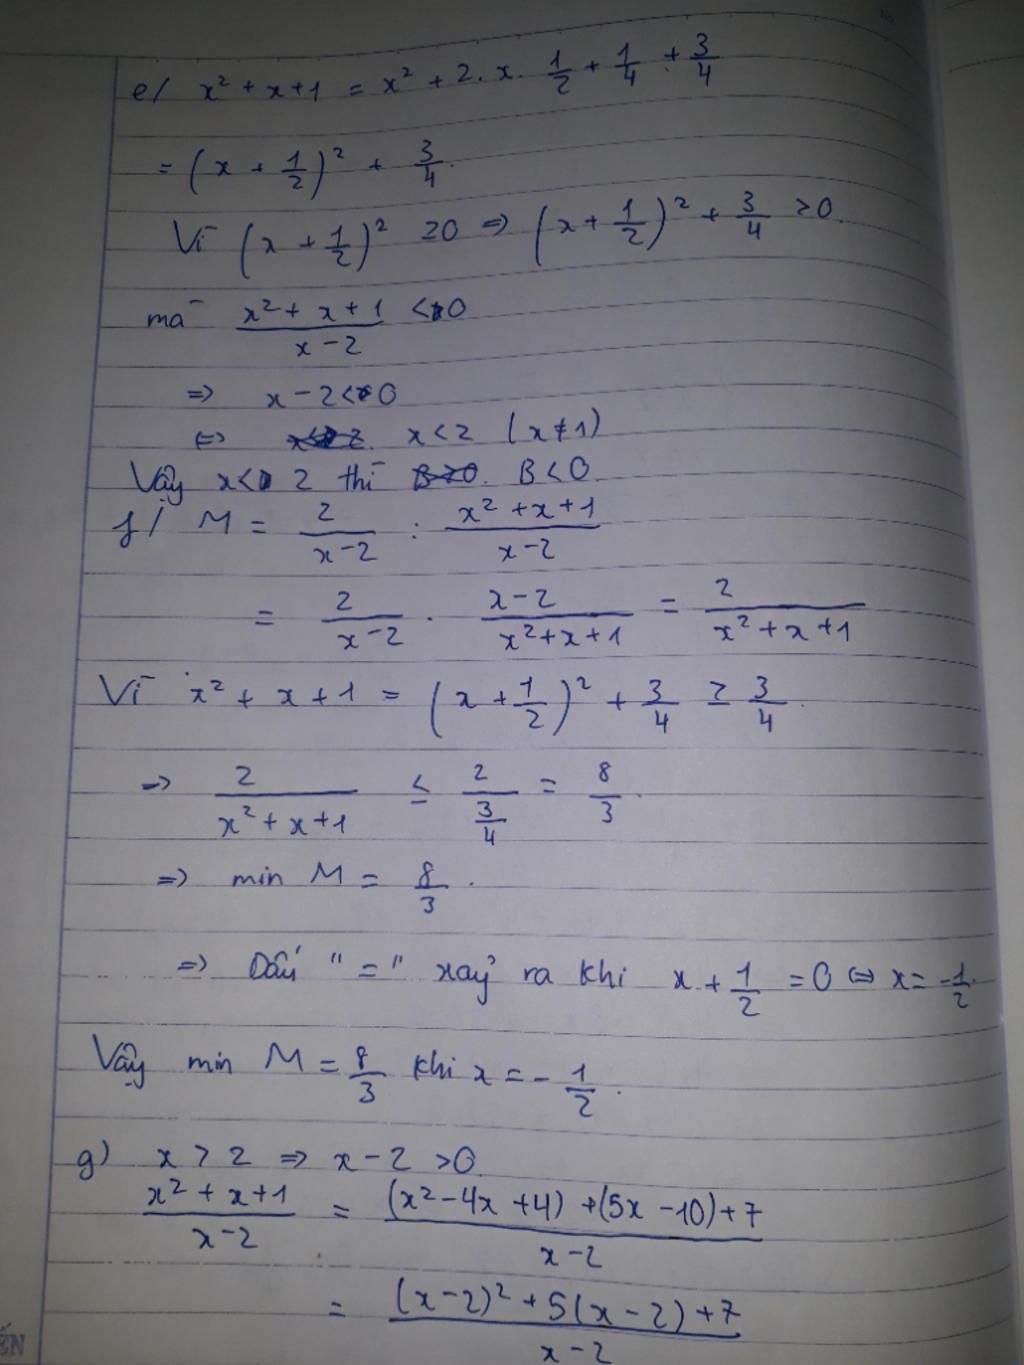 e/ x² + x + 1 = x² + 2. x. 1/2 + 1/4 + 3/4
= (x + 1/2)² + 3/4.
Vì (x + 1/2)² ≥0 ⇒ (x + 1/2)² + 3/4 >0.
mà (x² + x + 1)/(x - 2) < 0
⇒ x - 2 < 0
⇔ x < 2 (x ≠ 1)
Vậy x < 2 thì B < 0.
f/ M = 2/(x-2) : (x² + x + 1)/(x-2)
= 2/(x-2) . (x-2)/(x² + x + 1) = 2/(x² + x + 1)
Vì x² + x + 1 = (x + 1/2)² + 3/4 ≥ 3/4.
→ 2/(x² + x + 1) ≤ 2/(3/4) = 8/3.
⇒ min M = 8/3.
⇒ Dấu "=" xảy ra khi x + 1/2 = 0 ⇔ x = -1/2.
Vậy min M = 8/3 khi x = - 1/2.
g) x > 2 ⇒ x - 2 > 0.
(x² + x + 1)/(x-2) = ((x² - 4x + 4) + (5x - 10) + 7)/(x-2)
= ((x-2)² + 5(x-2) + 7)/(x-2)